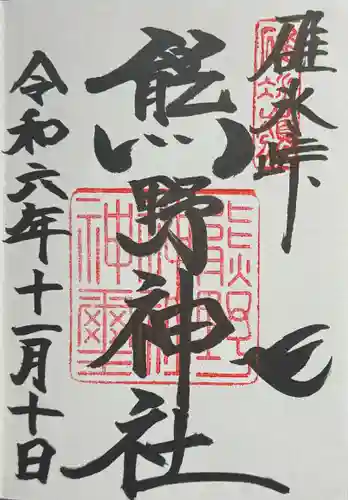 碓氷峠
熊野神社
令和六年十一月十日
熊野
神社
神璽